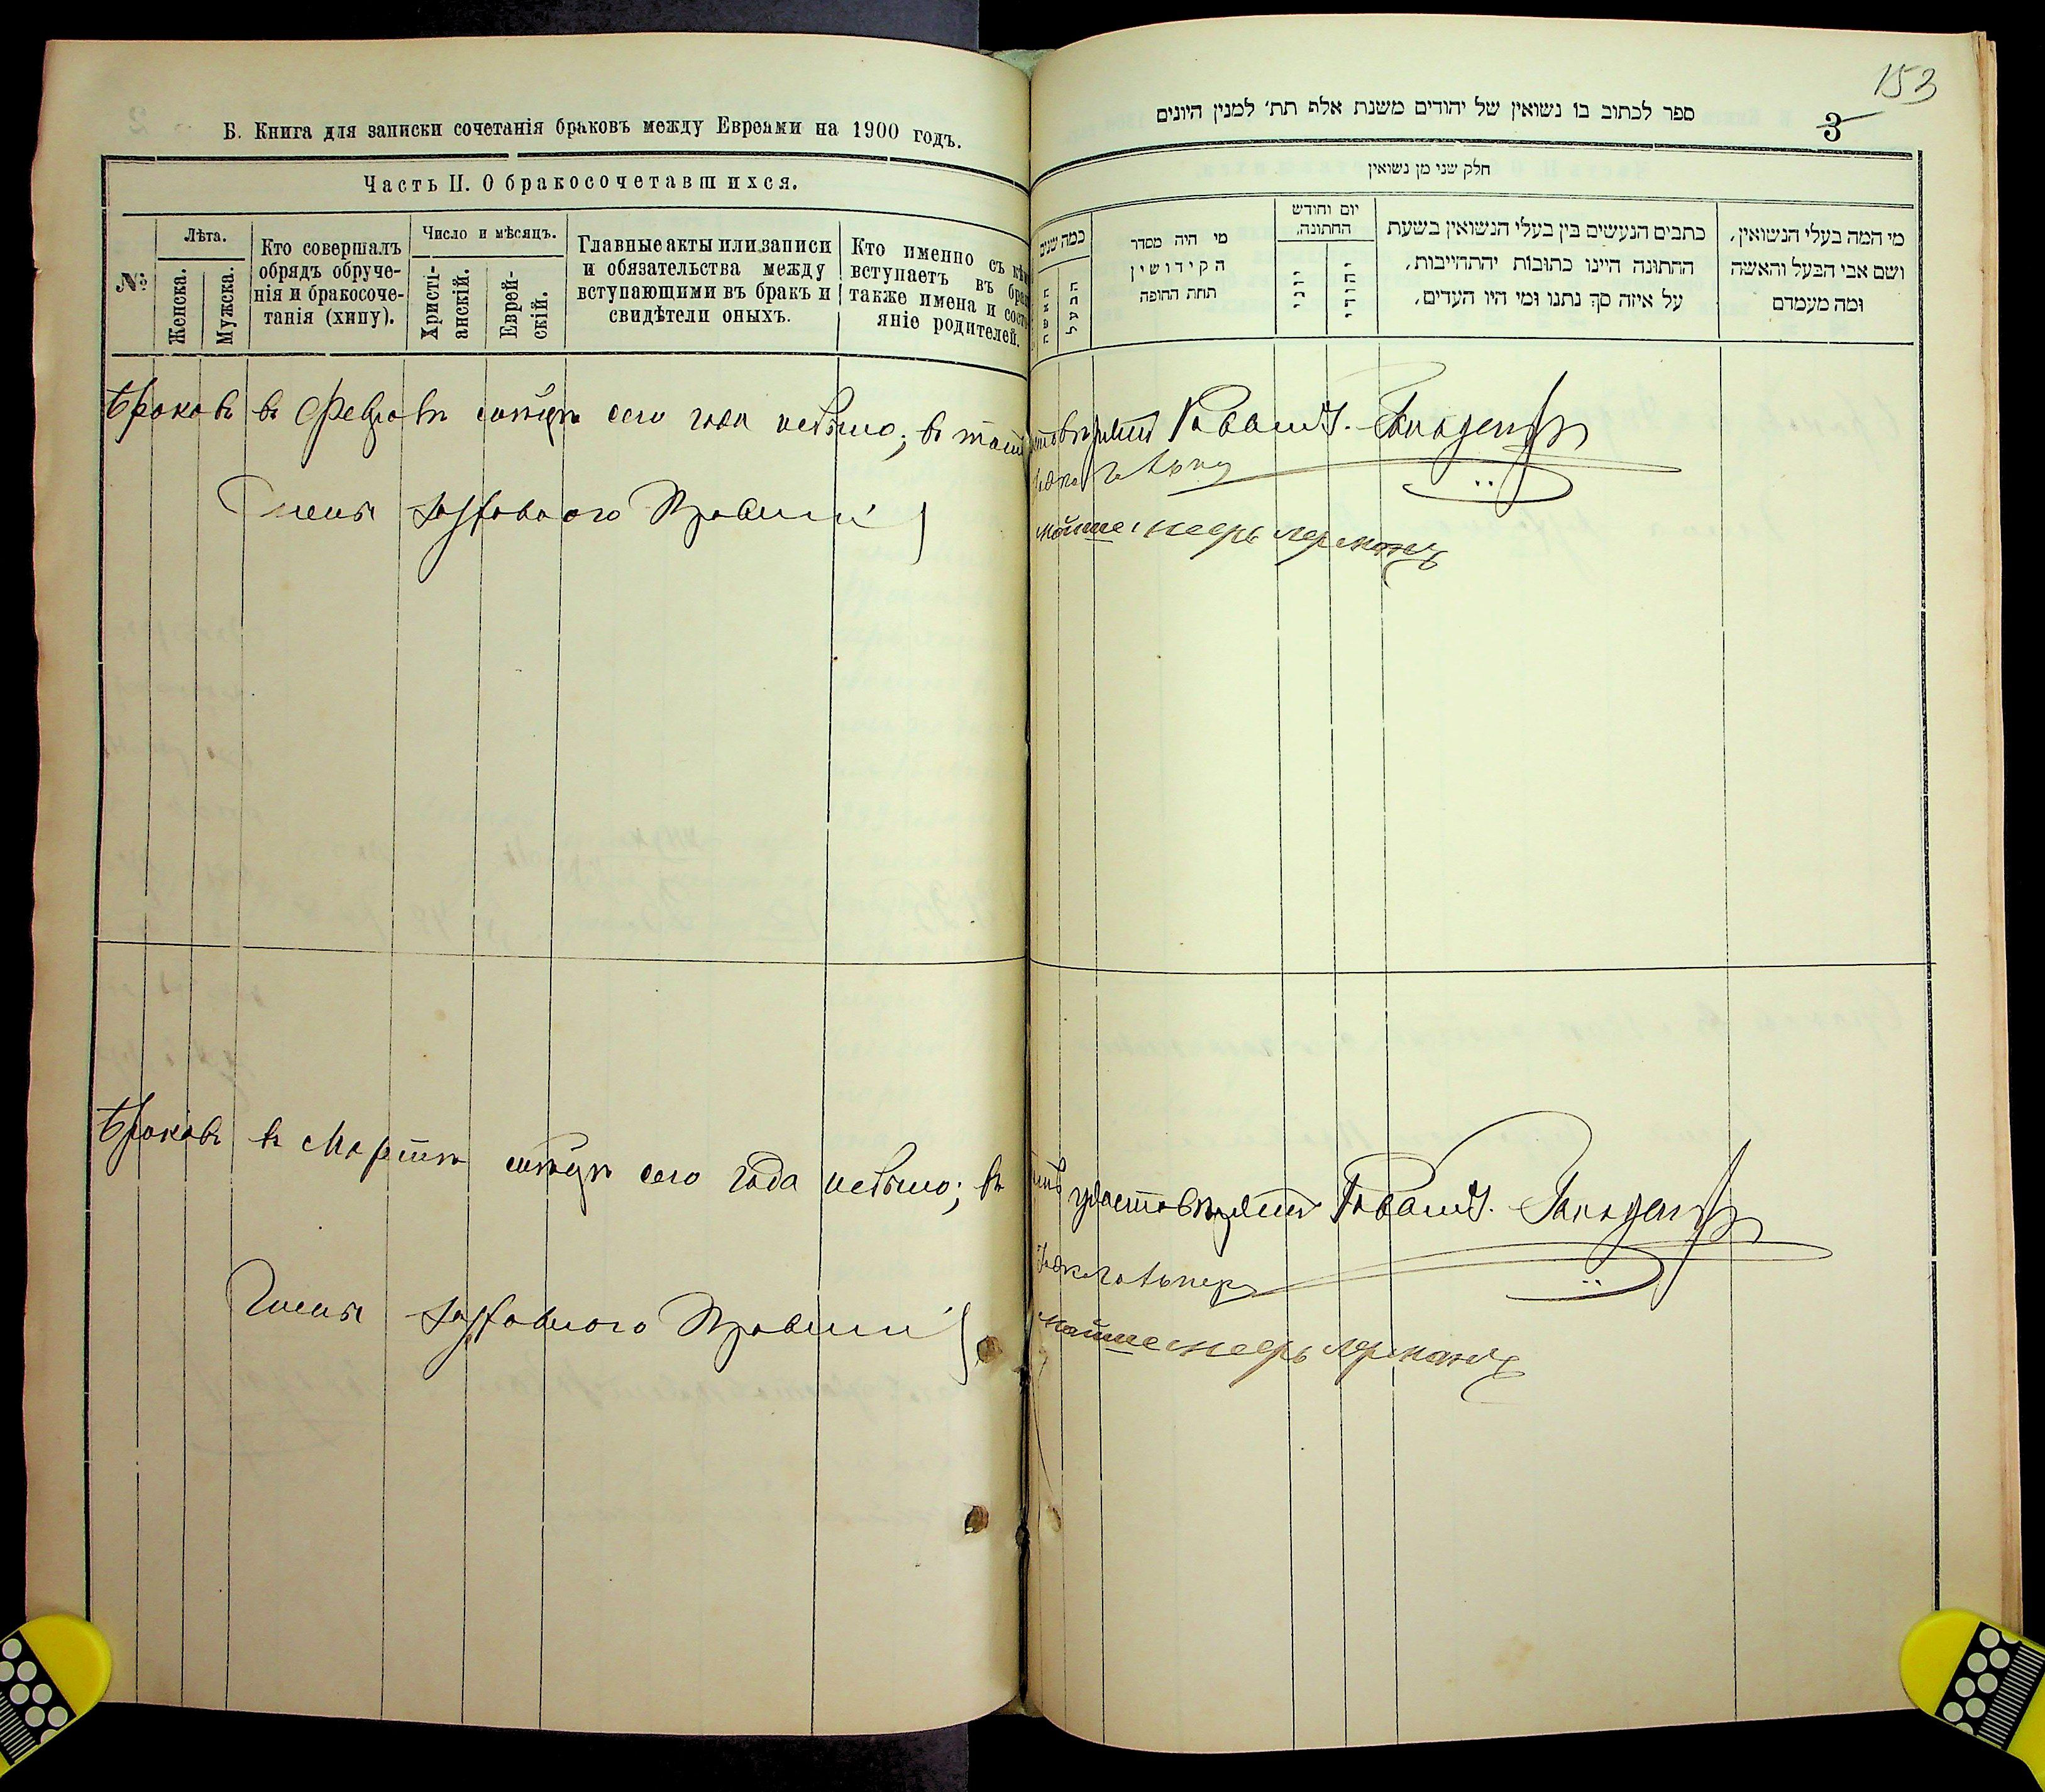 Б. Книга для записки сочетанія браковъ между Евреями на 1900 годъ.
Часть II. О бракосочетавшихся.
№
Лѣта.
Женска.
Мужска.
Кто совершалъ
обрядъ обруче-
нія и бракосоче-
танія (хипу).
Число и мѣсяцъ.
Христі-
анскій.
Еврей-
скій.
Главные акты или записи
и обязательства между
вступающими въ бракъ и
свидѣтели оныхъ.
Кто именно съ
вступаетъ въ
также имена и
яніе родителей.
Браковъ въ Февралѣ мѣсяцѣ сего года небыло; въ томъ
Члены Духовного Правленія
Браковъ въ Мартѣ мѣсяцѣ сего года небыло; въ
Члены Духовного Правленія
153
3
ספר לכתוב בו נשואין של יהודים משנת אלף תת׳ למנין היונים
חלק שני מן נשואין
כמה שנים
האשה
הבעל
מי היה מסדר
הקידושין
תחת החופה
יום וחודש
החתונה.
יוני
יהודי
כתבים הנעשים בין בעלי הנשואין בשעת
החתונה היינו כתובות יהתחייבות,
על איזה סך נתנו ומי היו העדים,
מי המה בעלי הנשואין,
ושם אבי הבעל והאשה
ומה מעמדם
Раввинъ
Мойше
удостовѣряетъ Раввинъ
Мойше